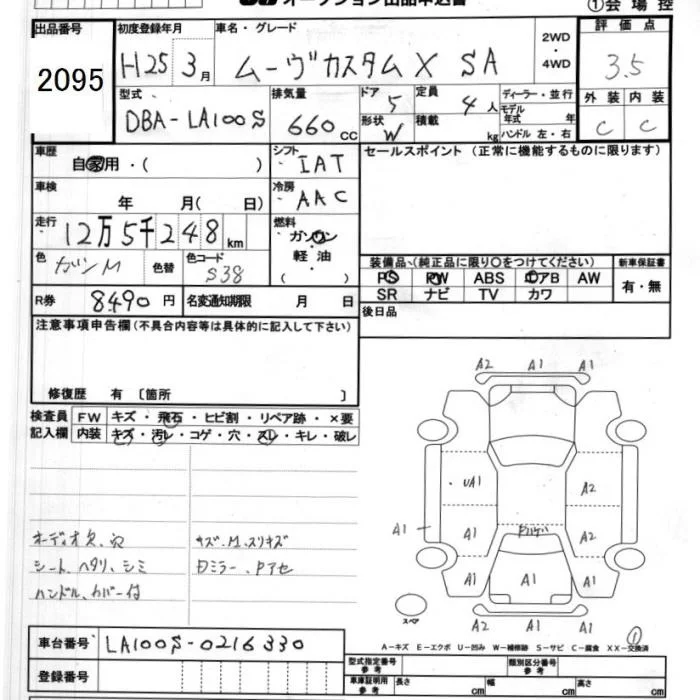 オークション出品申込書
①会場控
出品番号 初度登録年月 車名・グレード 2WD・4WD 評価点
2095 H25 3月 ムーヴカスタム X SA 3.5
型式 排気量 ドア 5 定員 4人 ディーラー・並行 外装 内装
DBA-LA100S 660cc 形状 W 積載 kg モデル年式 年 C C
ハンドル 左・右
車歴 自家用・( ) シフト IAT セールスポイント (正常に機能するものに限ります)
車検 年 月( 日) 冷房 AAC
走行 12万5千248km 燃料 ガソリン・軽油・( )
色 ガンM 色替 色コード S38 装備品(純正品に限り○をつけてください) 新車保証書
PS PW ABS エアB AW 有・無
SR ナビ TV カワ
R券 8490円 名変通知期限 月 日 後日品
注意事項申告欄(不具合内容等は具体的に記入して下さい)
修復歴 有〔箇所 〕
検査員記入欄 FW キズ・飛石・ヒビ割・リペア跡・×要
内装 キズ・汚レ・コゲ・穴・スレ・キレ・破レ
A2 A1 A1
UA1 A2
A1 A1 A2
A1 A1 A1
A2 A1 A1
スペア
オーディオ欠、穴 キズ・M、スリキズ
シート、ヘタリ、シミ
ハンドル、カバー付
A-キズ E-エクボ U-凹み W-補修跡 S-サビ C-腐食 XX-交換済
①
車台番号 LA100S-0216330
登録番号
型式指定番号 参考 類別区分番号 参考
車庫証明用 参考 長さ cm 幅 cm 高さ cm